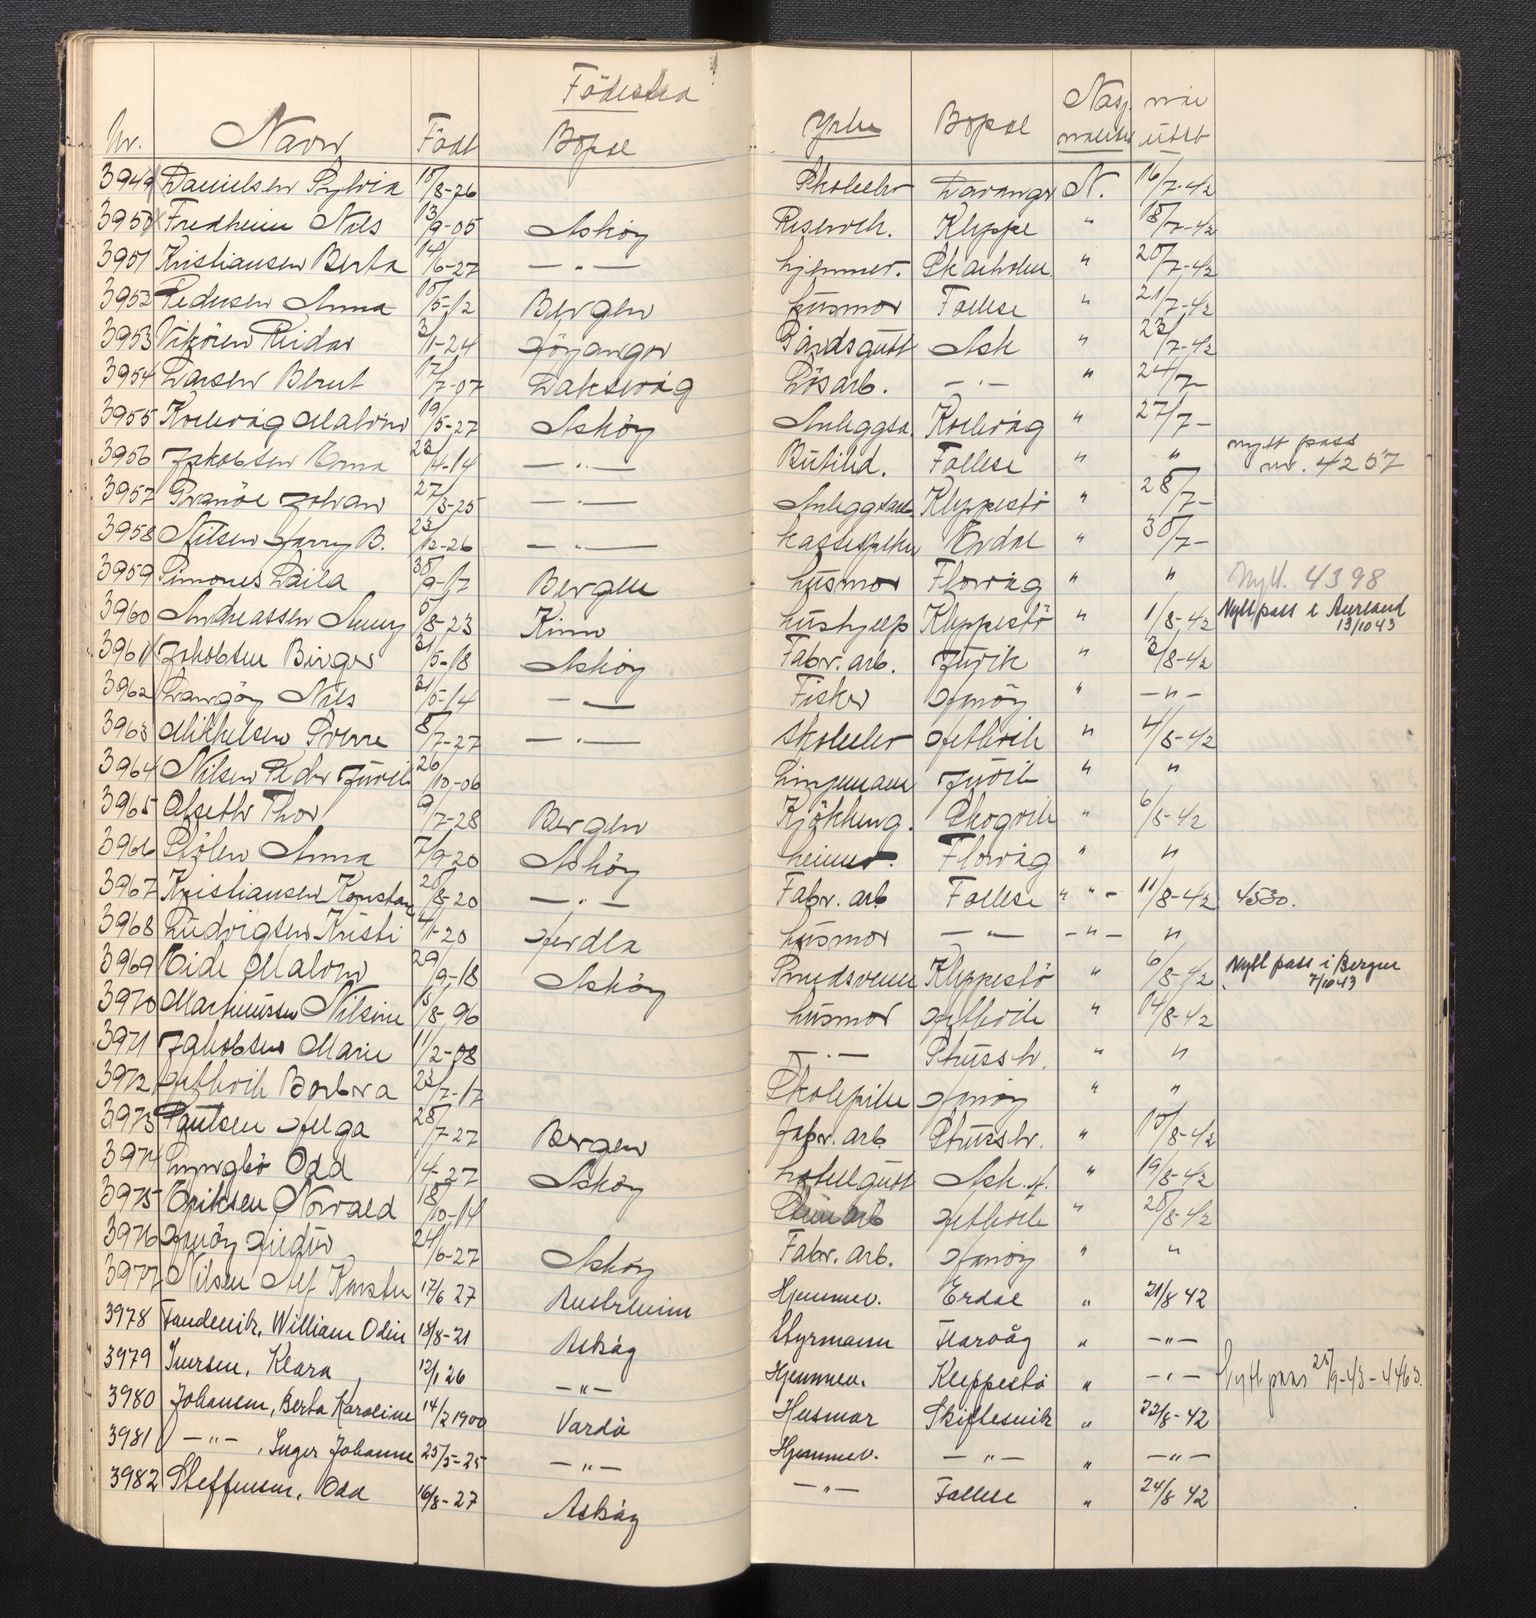 Nr. Navn Född Födested Bopel Yrke Bopel Nasj. nalitet når utst
3949 Danielsen Sylvia 15/8-26 Skoleelev N. 16/7-42
3950 Fredheim Nils 13/9-05 Asköy Kleppe " 18/7-42
3951 Kristiansen Berta 14/6-27 — " — hjemmev. Skarholm. " 20/7-42
3952 Pedersen Anna 15/5-12 Bergen husmor Follese " 21/7-42
3953 Vikören Reidar 3/1-24 Höyanger Gårdsgutt Ask " 23/7-42
3954 Larsen Bernt 17/7-07 Laksevåg Lösarb. — " — " 24/7-
3955 Kollevåg Malvin 19/5-27 Asköy Anleggsa. Kollevåg " 27/7-
3956 Jakobsen Erna 23/4-14 — " — Butikd. Follese " " nytt pass nr. 4257
3957 Svanöe Johan 27/3-25 — " — Anleggsarb. Kleppestö " 28/7-
3958 Nilsen Harry B. 23/12-26 — " — Erdal " 30/7-
3959 Simones Laila 30/9-17 Bergen husmor Florvåg " " Nytt. 4398
3960 Andreassen Sunny 5/8-23 Kinn hushjelp Kleppestö " 1/8-42 Nytt pass i Aurland 13/10 43
3961 Jakobsen Birger 31/5-18 Asköy Fabr. arb. Juvik " 3/8-42
3962 Langöy Nils 31/5-14 — " — Fisker Hanöy " — " —
3963 Mikkelsen Sverre 8/7-27 — " — skoleelev Hetlevik " 4/8-42
3964 Nilsen Peder Juvik 26/10-06 Linjemann Juvik " "
3965 Olseth Thor 9/7-28 Bergen Kjökkeng. Skogvik " 6/8-42
3966 Sjölen Anna 7/9-20 Asköy heimev. Florvåg " "
3967 Kristiansen Konstan 28/8-20 — " — Fabr. arb Follese " " - 11/8-42 4530.
3968 Ludvigsen Kristi 4/1-20 Herdla husmor — " — - " - "
3969 Eide Malvin 29/9-18 Asköy Smedsvenn Kleppestö " 6/8-42 Nytt pass i Bergen 7/10 43
3970 Martinussen Nilsine 15/8-96 husmor Hetlevik " 14/8-42
3971 Jakobsen Marie 11/2-08 — " — Strussh. " "
3972 Hetlevik Borbra 23/7-17 Skolepike Hanöy " "
3973 Paulsen Helga 28/7-27 Bergen Fabr. arb Strussh. " 15/8-42
3974 Lyngbö Odd 1/4-27 Asköy hotellgutt Ask. H. " 19/8-42
3975 Eriksen Norvald 18/10-14 Hetlevik " 20/8-42
3976 Hanöy 24/6-27 Asköy Fabr. arb. Hanöy " "
3977 Nilsen Alf Karsten 17/6 27 Austrheim Hjemmev. Erdal " 21/8 42
3978 Tandevik, William Odin 18/8-21 Askøy Styrmann Florvåg " — " —
3979 Iversen, Klara 12/1 26 — " — Hjemmev. Kleppestø " — " — Nytt pass 25/9-43-4463.
3980 Johansen, Berta Karoline 14/2 1900 Vardø Husmor Skiftesvik " 22/8-42
3981 — " —, Inger Johanne 25/5-25 — " — Hjemmev. — " — " — " —
3982 Steffensen, Odd 16/8-27 Askøy — " — Follese " 24/8 42